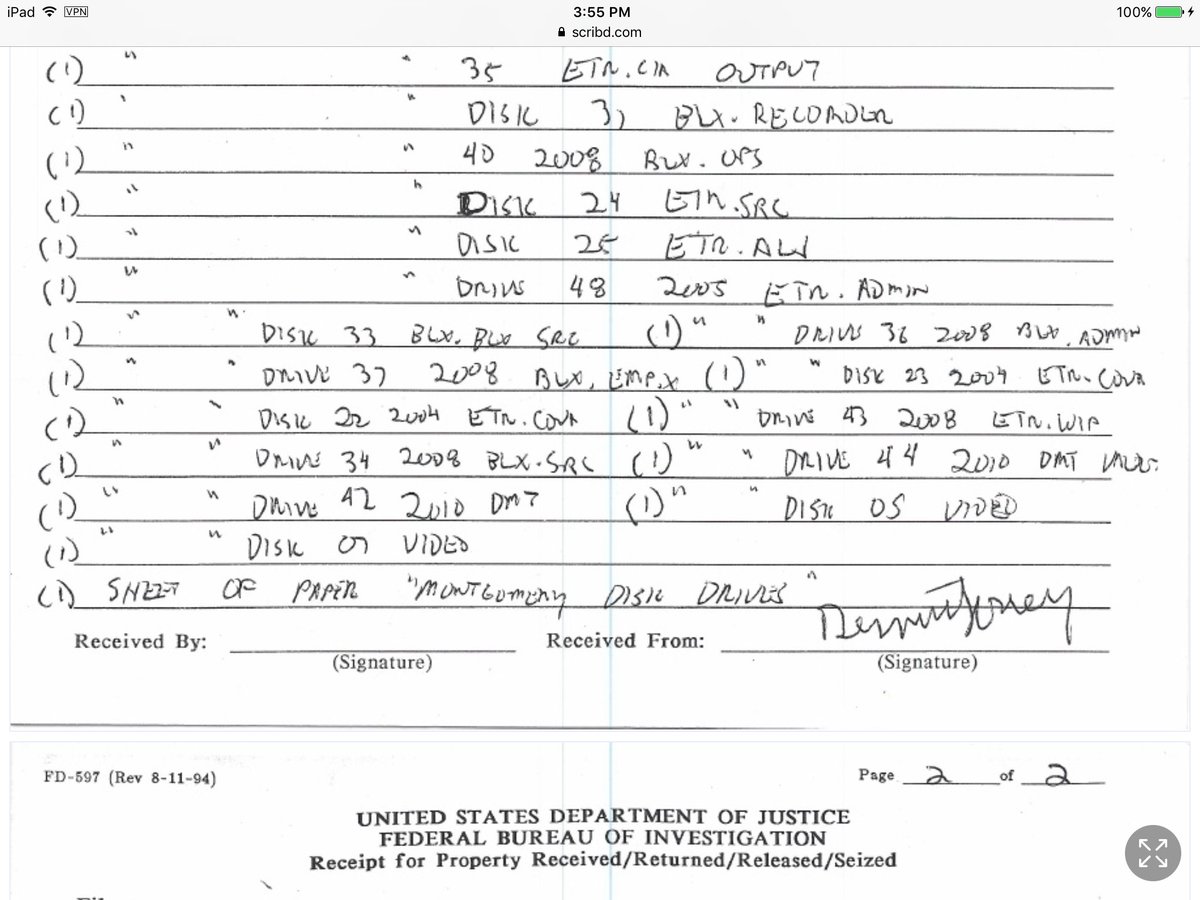 iPad VPN 3:55 PM 100%
scribd.com
(1) " " 35 ETR.CIA OUTPUT
(1) " " DISK 3, BLX. RECORDER
(1) " " 40 2008 BLX. OPS
(1) " " DISK 24 ETR.SRC
(1) " " DISK 25 ETR.
(1) " " DRIVE 48 2005 ETR. ADMIN
(1) " " DISK 33 BLX. BLX SRC (1) " " DRIVE 36 2008 BLX. ADMIN
(1) " " DRIVE 37 2008 BLX, (1) " " DISK 23 2004 ETR.
(1) " " DISK 22 2004 ETR. (1) " " DRIVE 43 2008 ETR.WIP
(1) " " DRIVE 34 2008 BLX.SRC (1) " " DRIVE 44 2010 DMT
(1) " " DRIVE 42 2010 DMT (1) " " DISK 05 VIDEO
(1) " " DISK 07 VIDEO
(1) SHEET OF PAPER "MONTGOMERY DISK DRIVES"
Received By: (Signature) Received From: (Signature)
FD-597 (Rev 8-11-94) Page 2 of 2
UNITED STATES DEPARTMENT OF JUSTICE
FEDERAL BUREAU OF INVESTIGATION
Receipt for Property Received/Returned/Released/Seized